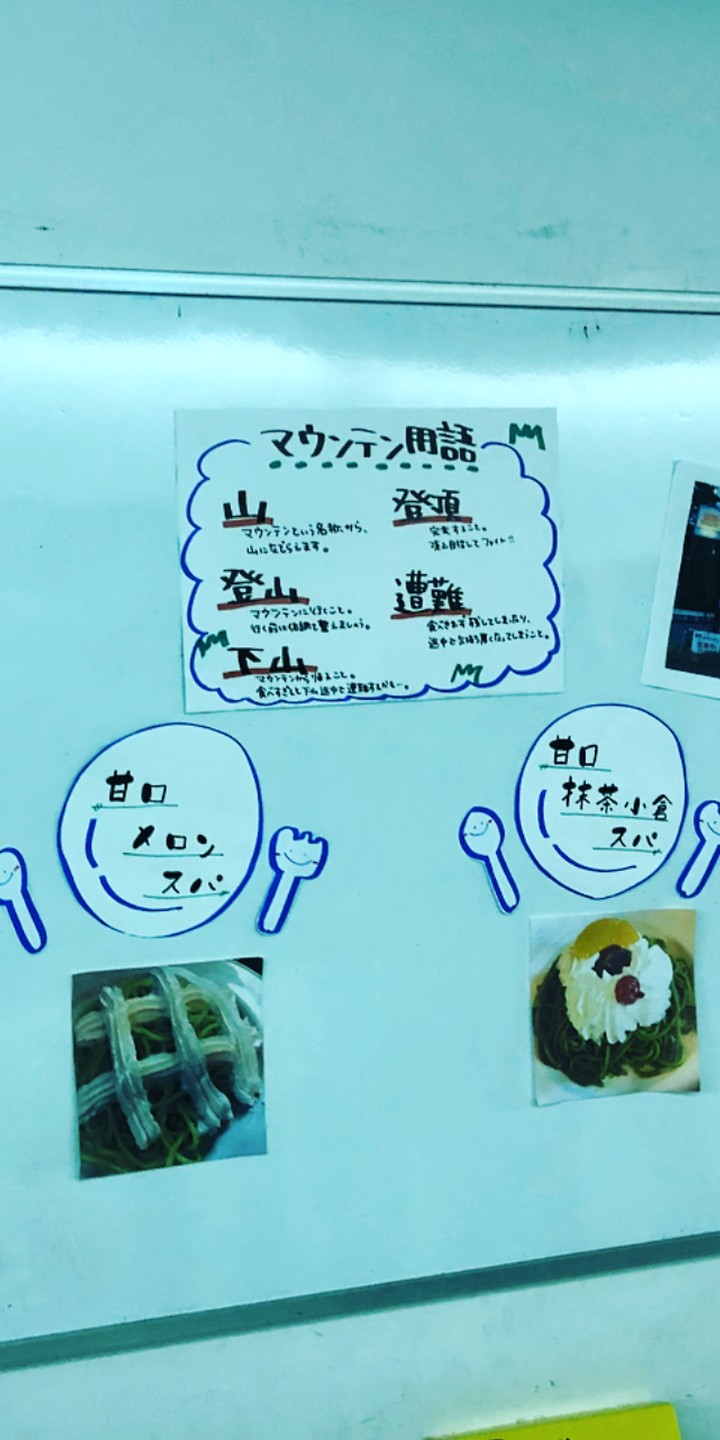 マウンテン用語
山
マウンテンという名称から、
山になぞらえます。
登山
マウンテンに行くこと。
行く前に体調を整えましょう。
下山
マウンテンから帰ること。
食べすぎると下山途中で遭難するかも…。
登頂
完食すること。
頂上目指してファイト!!
遭難
食べきれず残してしまったり、
途中で気持ち悪くなってしまうこと。
甘口
メロン
スパ
甘口
抹茶小倉
スパ